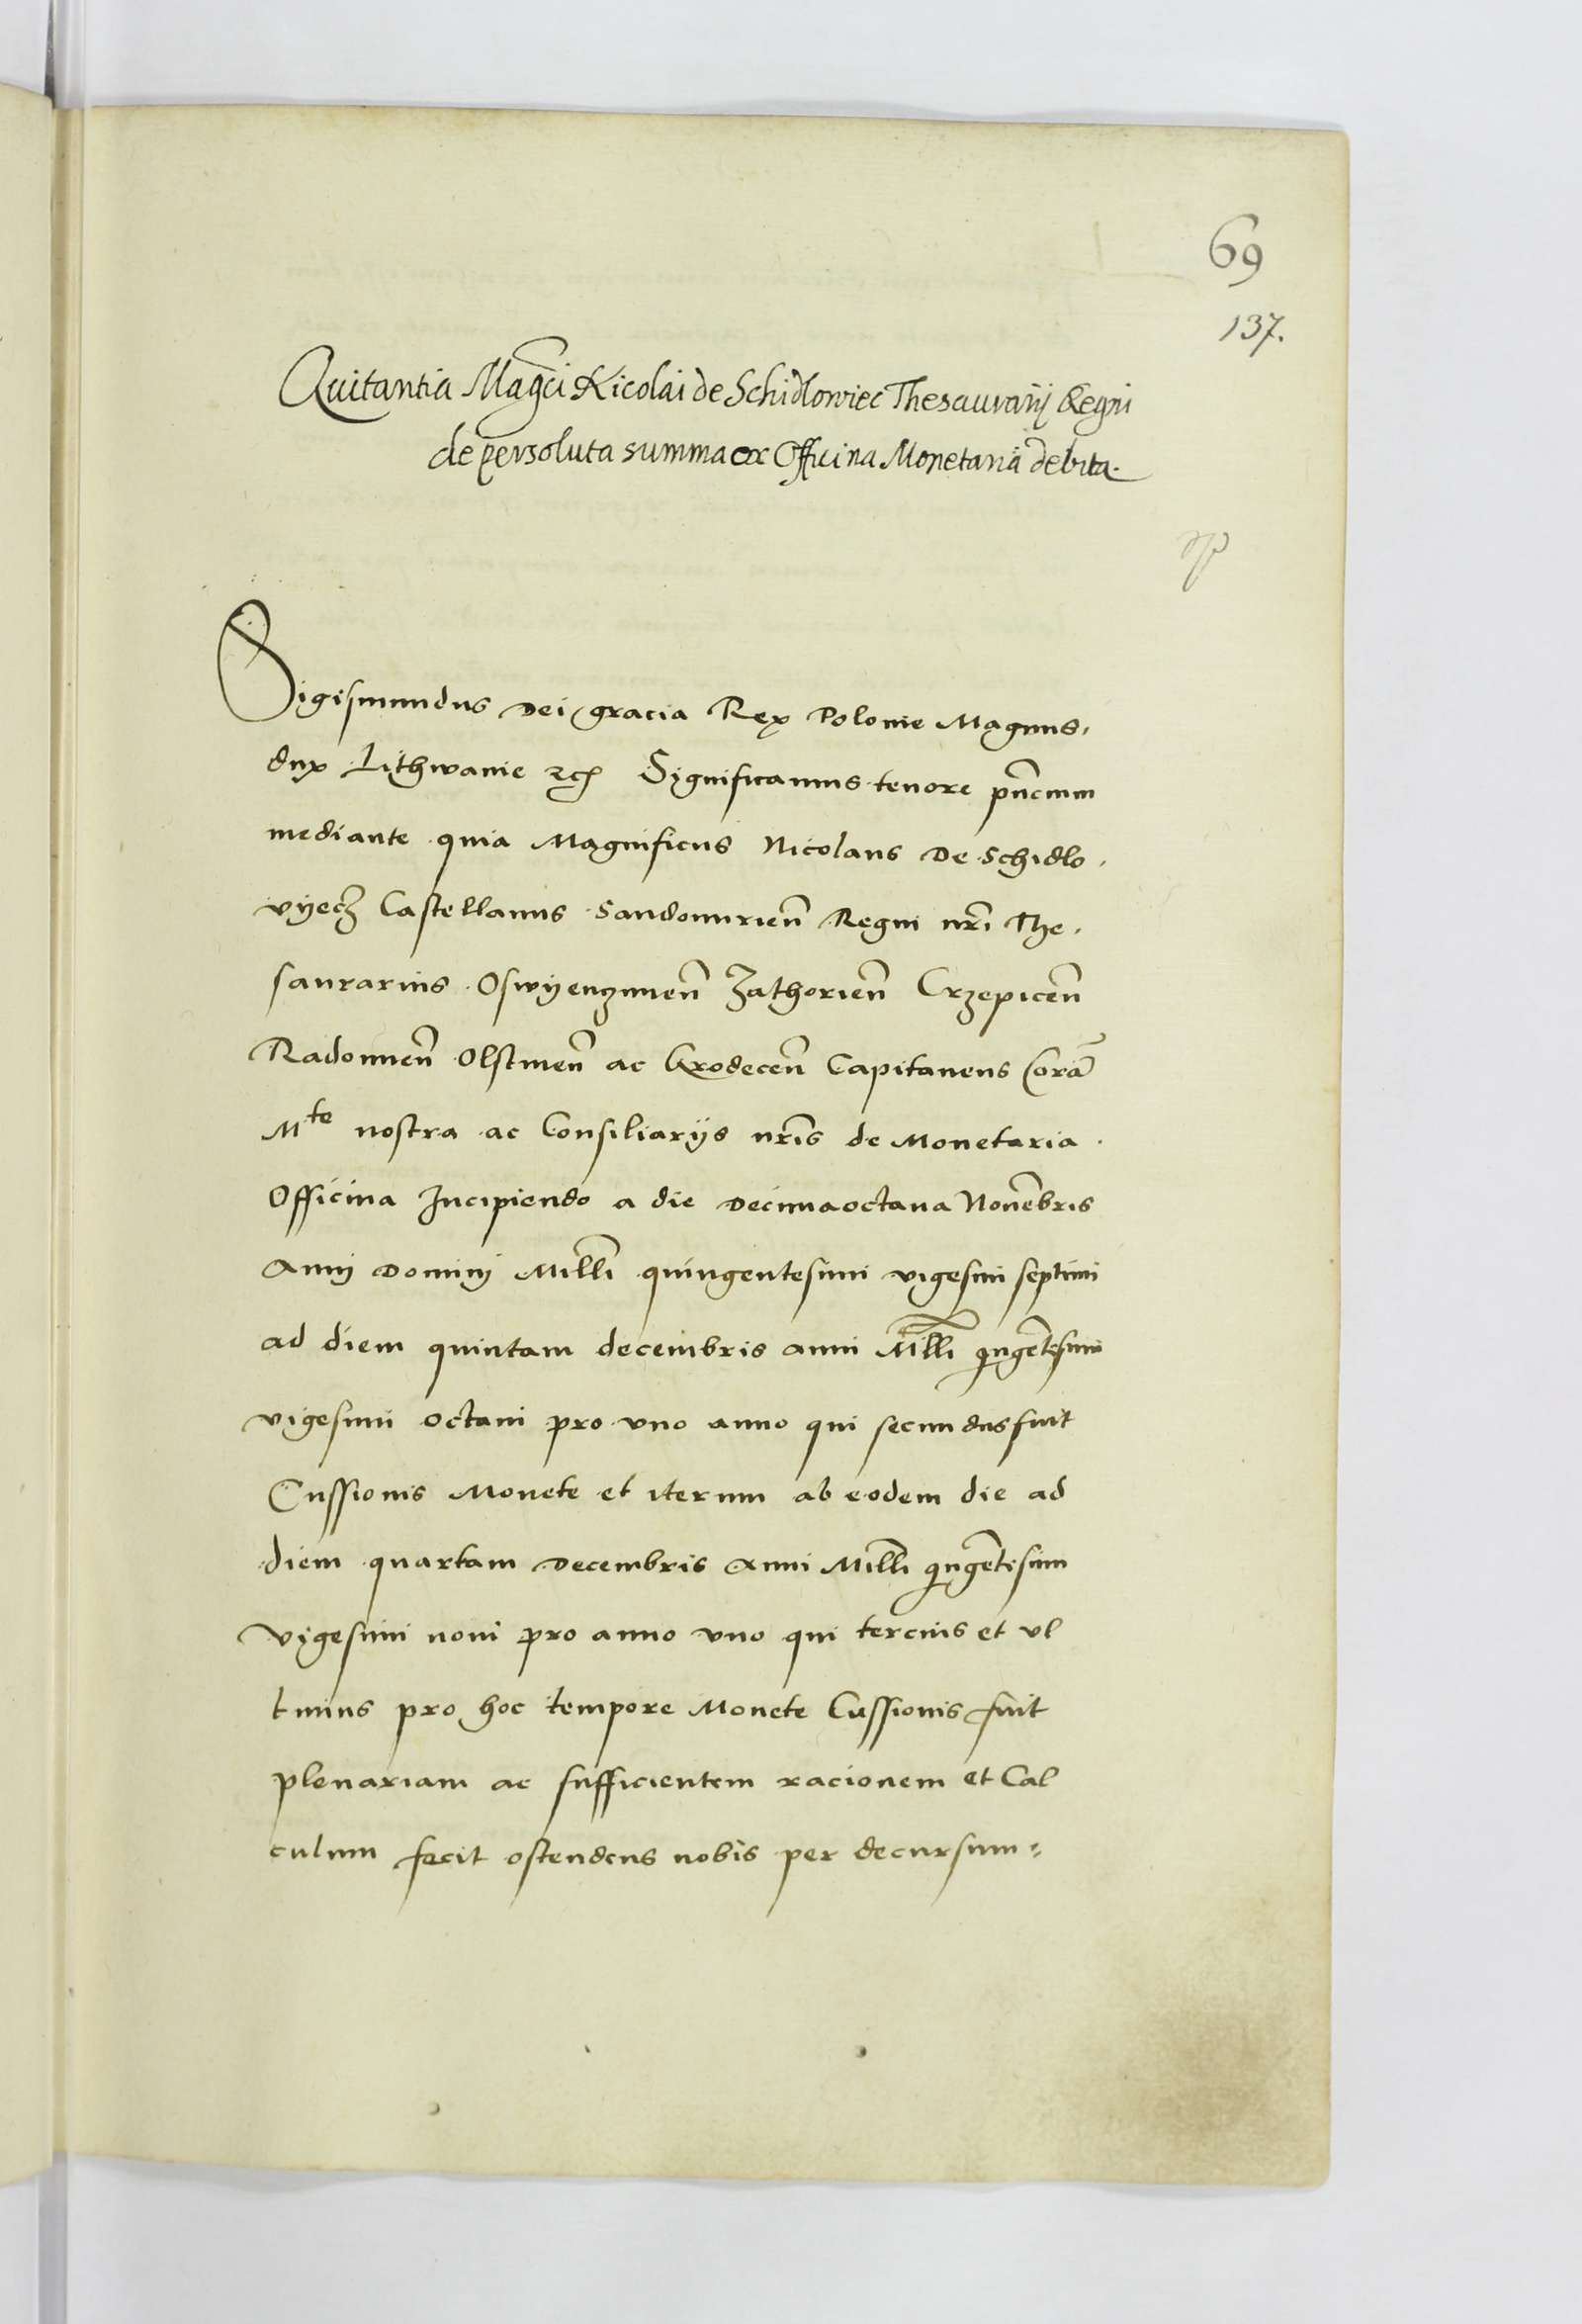 69
137.
Quitantia Magci Nicolai de Schidlowiec Thesaurarij Regni
de persoluta summa ex Officina Monetaria debita.
Sigismundus Dei gracia Rex Polonie Magnus
dux Lithwanie etc Significamus tenore pncium
mediante quia Magnificus Nicolaus De Schidlo
vyecz Castellanus Sandomirien Regni nri The
saurarius Oswyenczimen Zathorien Crzepicen
Radomien Olstinen ac Grodecen Capitaneus Cora
Mte nostra ac Consiliarijs nris de Monetaria
Officina Incipiendo a die Decimaoctaua Nouebris
Anni Domini Milli quingentesimi vigesimi septimi
ad diem quintam decembris anni Milli qingetesimi
vigesimi octaui pro vno anno qui secundus fuit
Cussionis Monete et iterum ab eodem die ad
diem quartam Decembris Anni Milli qingetesimi
vigesimi noni pro anno vno qui tercius et vl
timus pro hoc tempore Monete Cussionis fuit
plenariam ac sufficientem racionem et Cal
culum fecit ostendens nobis per decursum